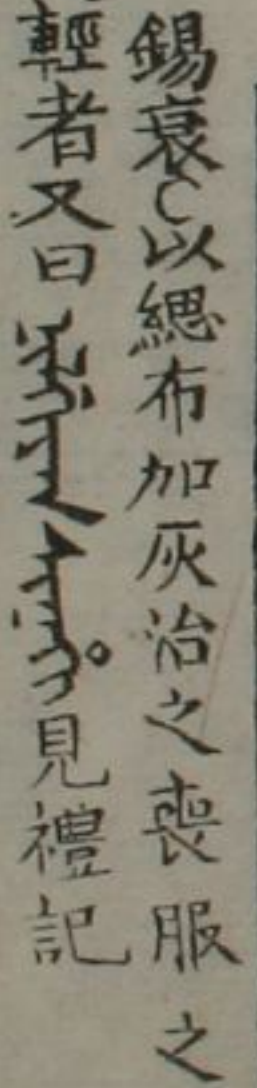 錫衰以緦布加灰治之喪服之
輕者又曰 見禮記